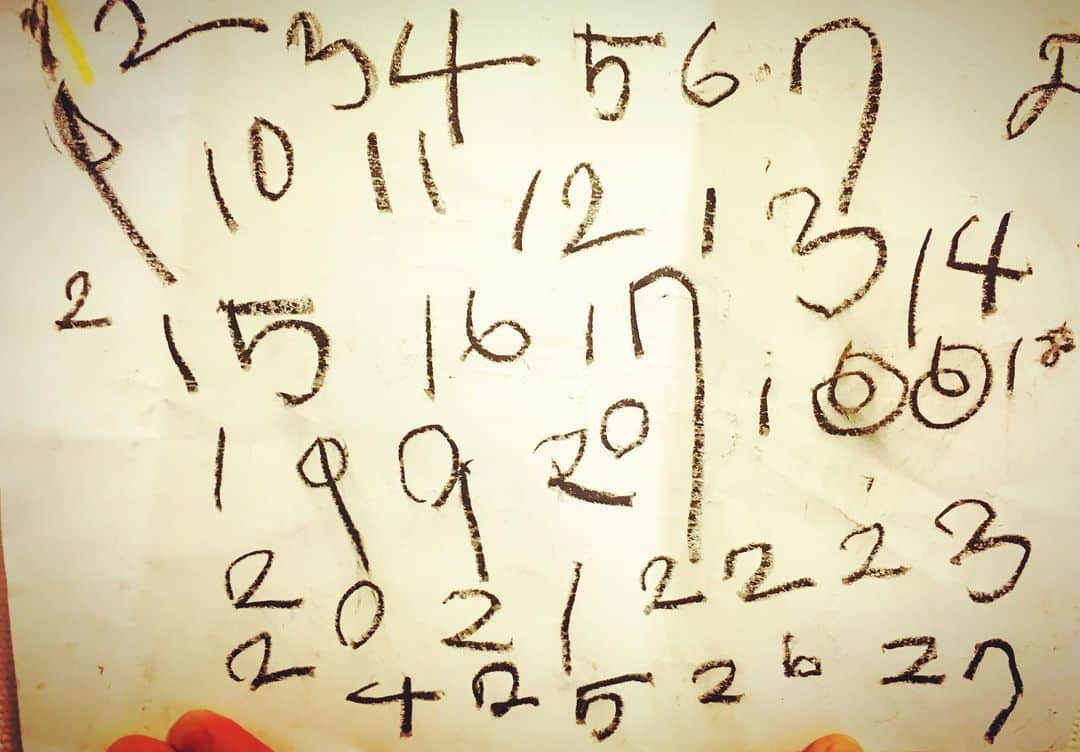 1 2 3 4 5 6 7 8
9 10 11 12 13 14
2 15 16 17 1 6 6 18
1 9 9 20
20 21 22 23
24 25 26 27